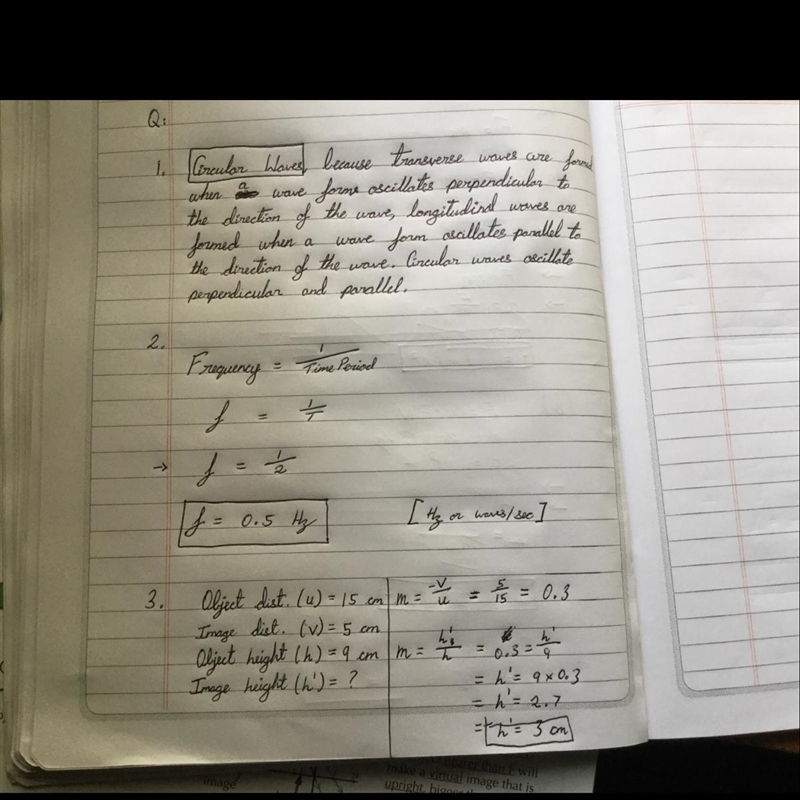 Q:
1. Circular Waves, because transverse waves are formed
when a wave forms oscillates perpendicular to
the direction of the wave, longitudinal waves are
formed when a wave form oscillates parallel to
the direction of the wave. Circular waves oscillate
perpendicular and parallel.
2.
Frequency = 1/Time Period
f = 1/T
→ f = 1/2
f = 0.5 Hz [Hz or waves/sec]
3. Object dist. (u) = 15 cm
Image dist. (v) = 5 cm
Object height (h) = 9 cm
Image height (h') = ?
m = -v/u = 5/15 = 0.3
m = h'/h = 0.3 = h'/9
= h' = 9 × 0.3
= h' = 2.7
= h' = 3 cm
image
than f will
make a virtual image that is